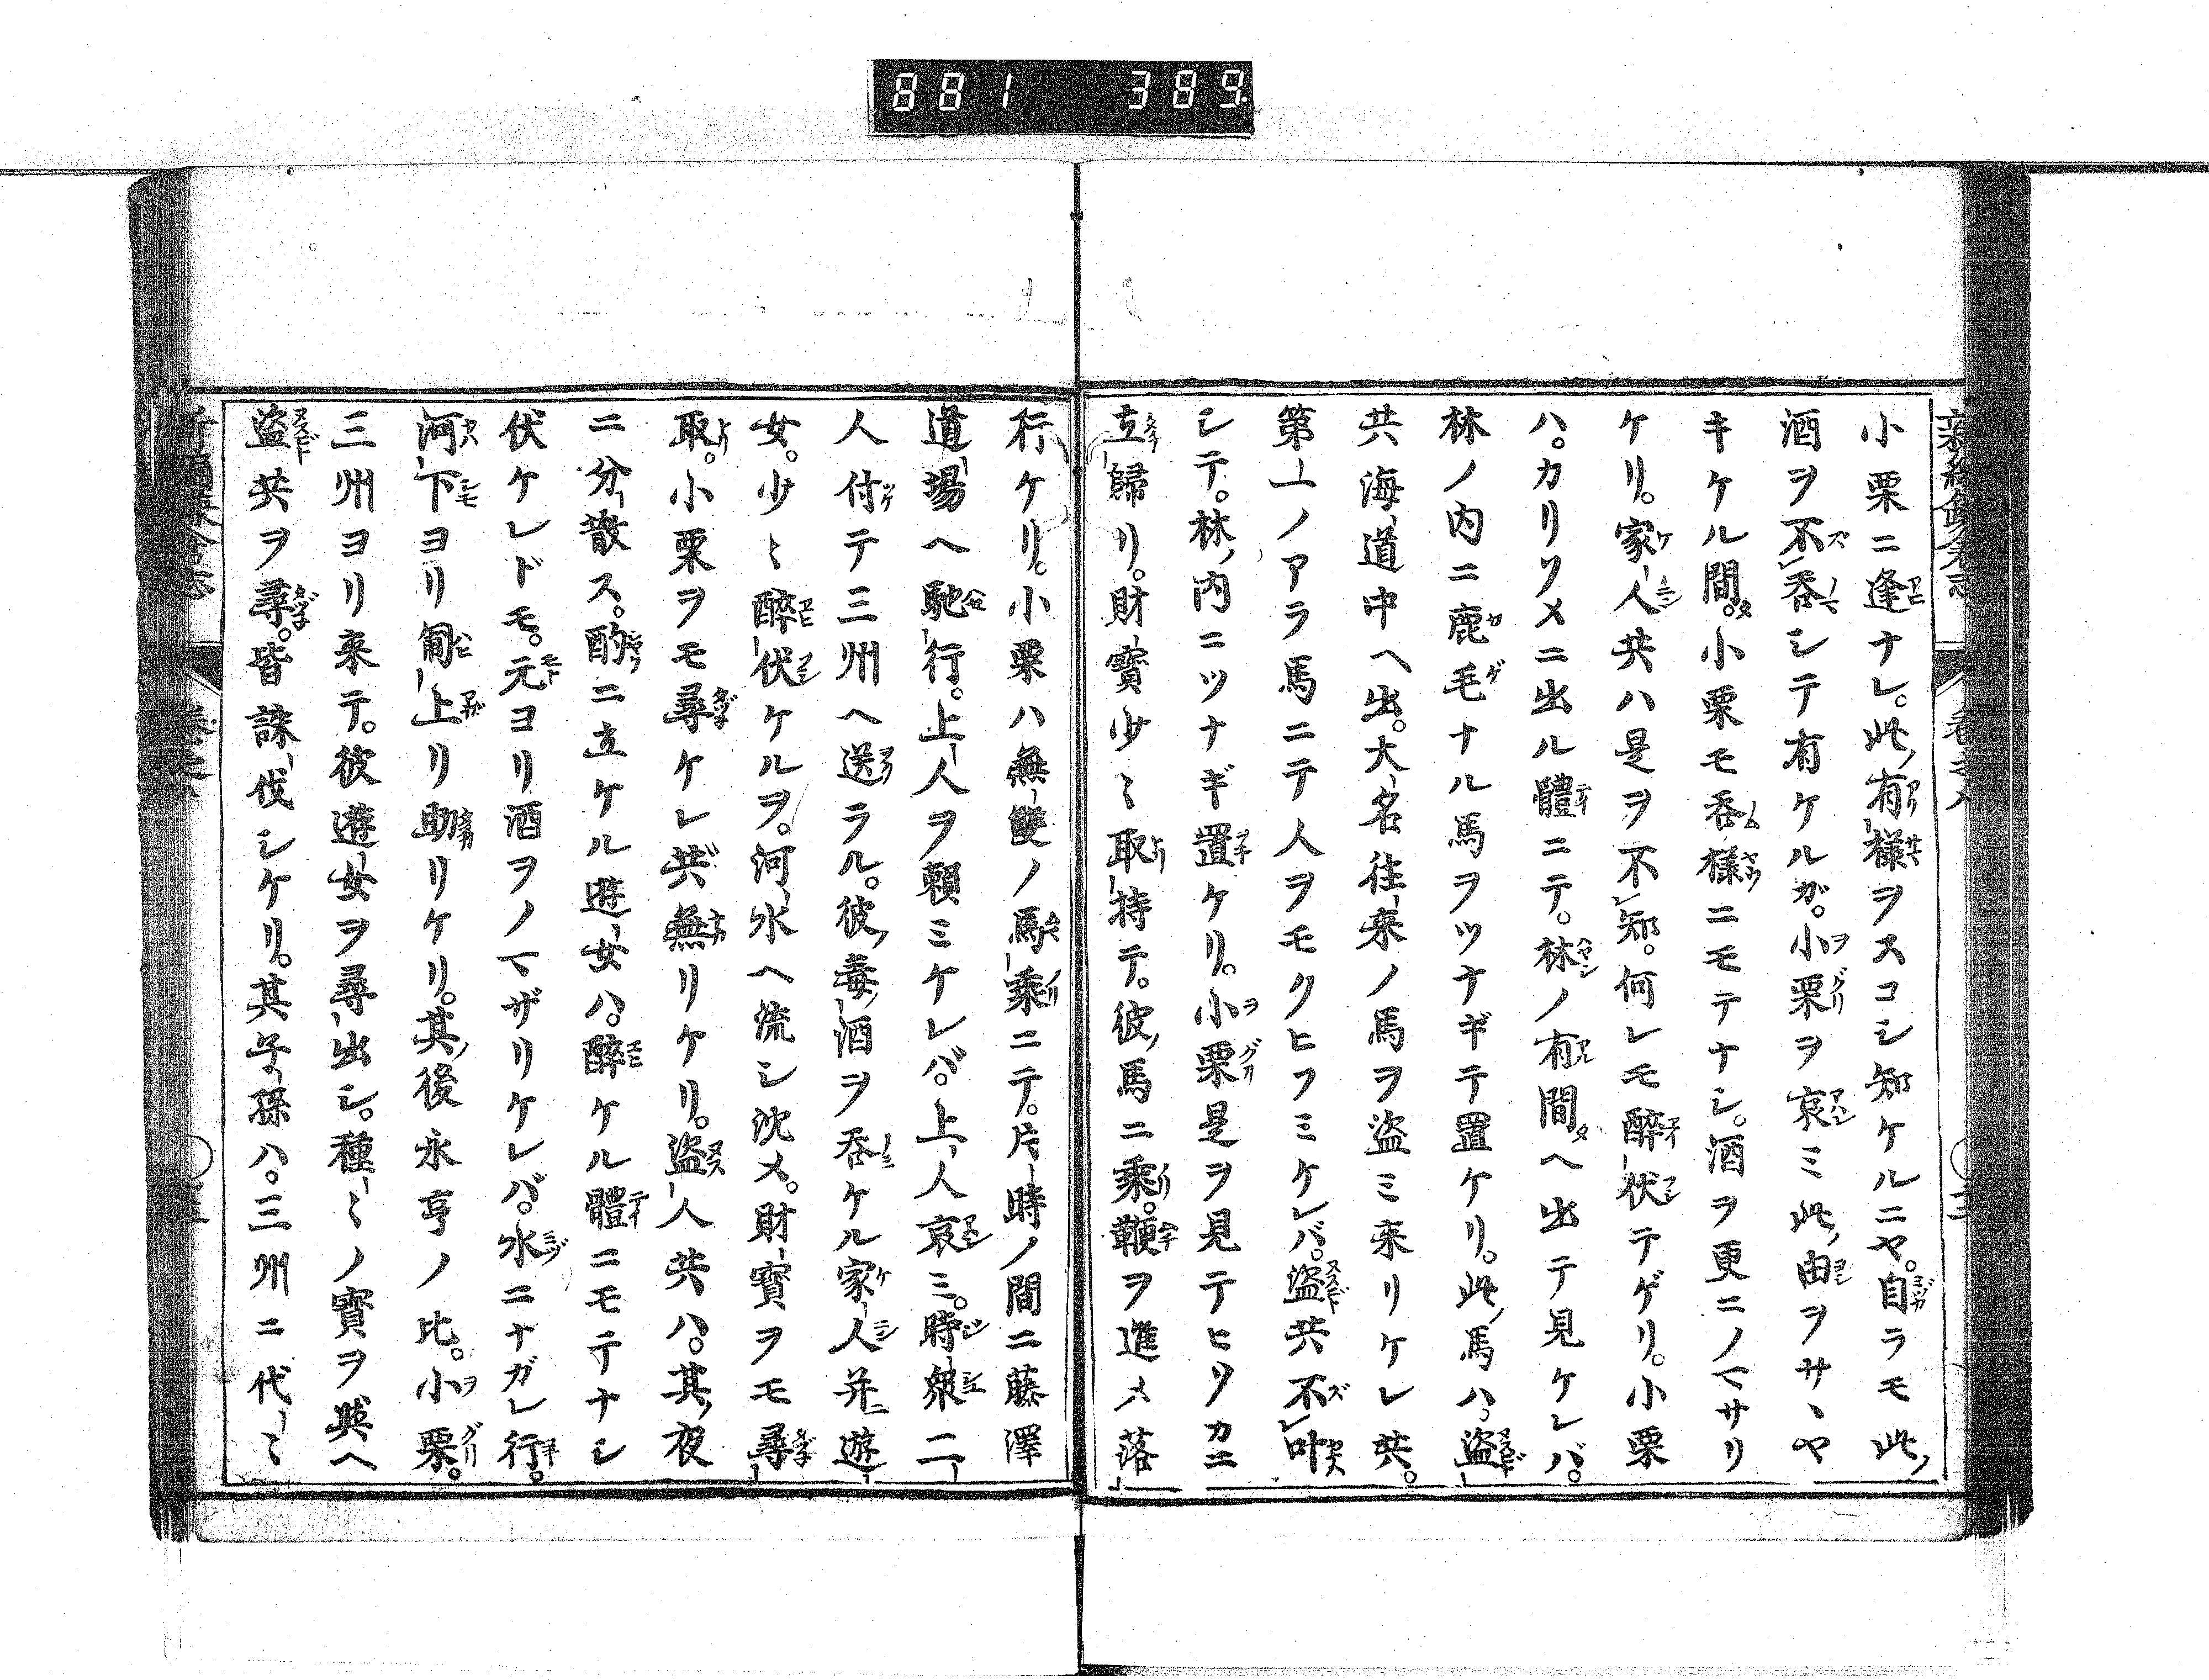 881 389
小栗ニ逢ナレ。此有様ヲスコシ知ケルニヤ。自ラモ此
酒ヲ不呑シテ有ケルガ。小栗ヲ哀ミ此由ヲサヽヤ
キケル間。小栗モ呑様ニモテナシ。酒ヲ更ニノマサリ
ケリ。家人共ハ是ヲ不知。何レモ醉伏テゲリ。小栗
ハ。カリソメニ出ル體ニテ。林ノ有間ヘ出テ見ケレバ。
林ノ内ニ鹿毛ナル馬ヲツナギテ置ケリ。此馬ハ盗
共海道中ヘ出。大名往来ノ馬ヲ盗ミ来リケレ共。
第一ノアラ馬ニテ人ヲモクヒフミケレバ。盗共不叶
シテ。林内ニツナギ置ケリ。小栗是ヲ見テヒソカニ
立歸リ。財寳少〻取持テ。彼馬ニ乘。鞭ヲ進メ落
行ケリ。小栗ハ無雙ノ馬乘ニテ。片時ノ間ニ藤澤
道場ヘ馳行。上人ヲ頼ミケレバ。上人哀ミ。時衆二
人付テ三州ヘ送ラル。彼毒酒ヲ呑ケル家人并遊
女。少〻醉伏ケルヲ。河水ヘ流シ沈メ。財寳ヲモ尋
取。小栗ヲモ尋ケレ共無リケリ。盗人共ハ。其夜
ニ分散ス。酌ニ立ケル遊女ハ。醉ケル體ニモテナシ
伏ケレドモ。元ヨリ酒ヲノマザリケレバ。水ニナガレ行。
河下ヨリ匍上リ助リケリ。其後永亨ノ比。小栗。
三州ヨリ来テ。彼遊女ヲ尋出シ。種〻ノ寳ヲ與ヘ
盗共ヲ尋。皆誅伐シケリ。其子孫ハ。三州ニ代〻